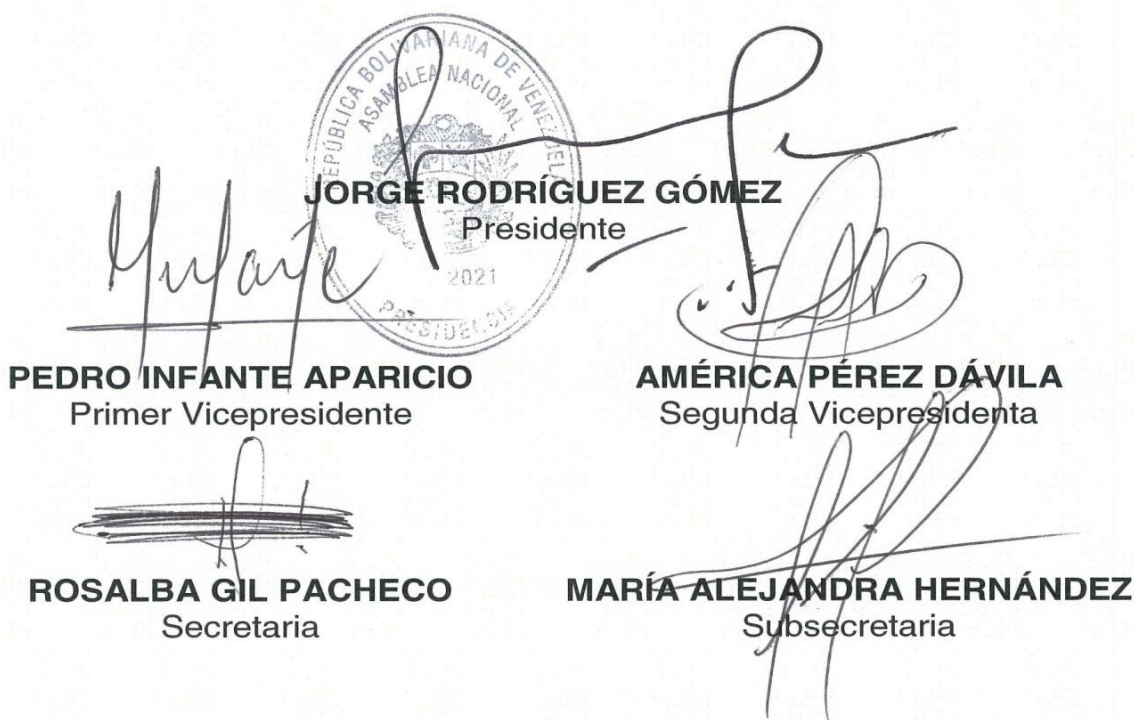 REPÚBLICA BOLIVARIANA DE VENEZUELA
ASAMBLEA NACIONAL
JORGE RODRÍGUEZ GÓMEZ
Presidente
2021
PRESIDENCIA
PEDRO INFANTE APARICIO
Primer Vicepresidente
AMÉRICA PÉREZ DÁVILA
Segunda Vicepresidenta
ROSALBA GIL PACHECO
Secretaria
MARÍA ALEJANDRA HERNÁNDEZ
Subsecretaria